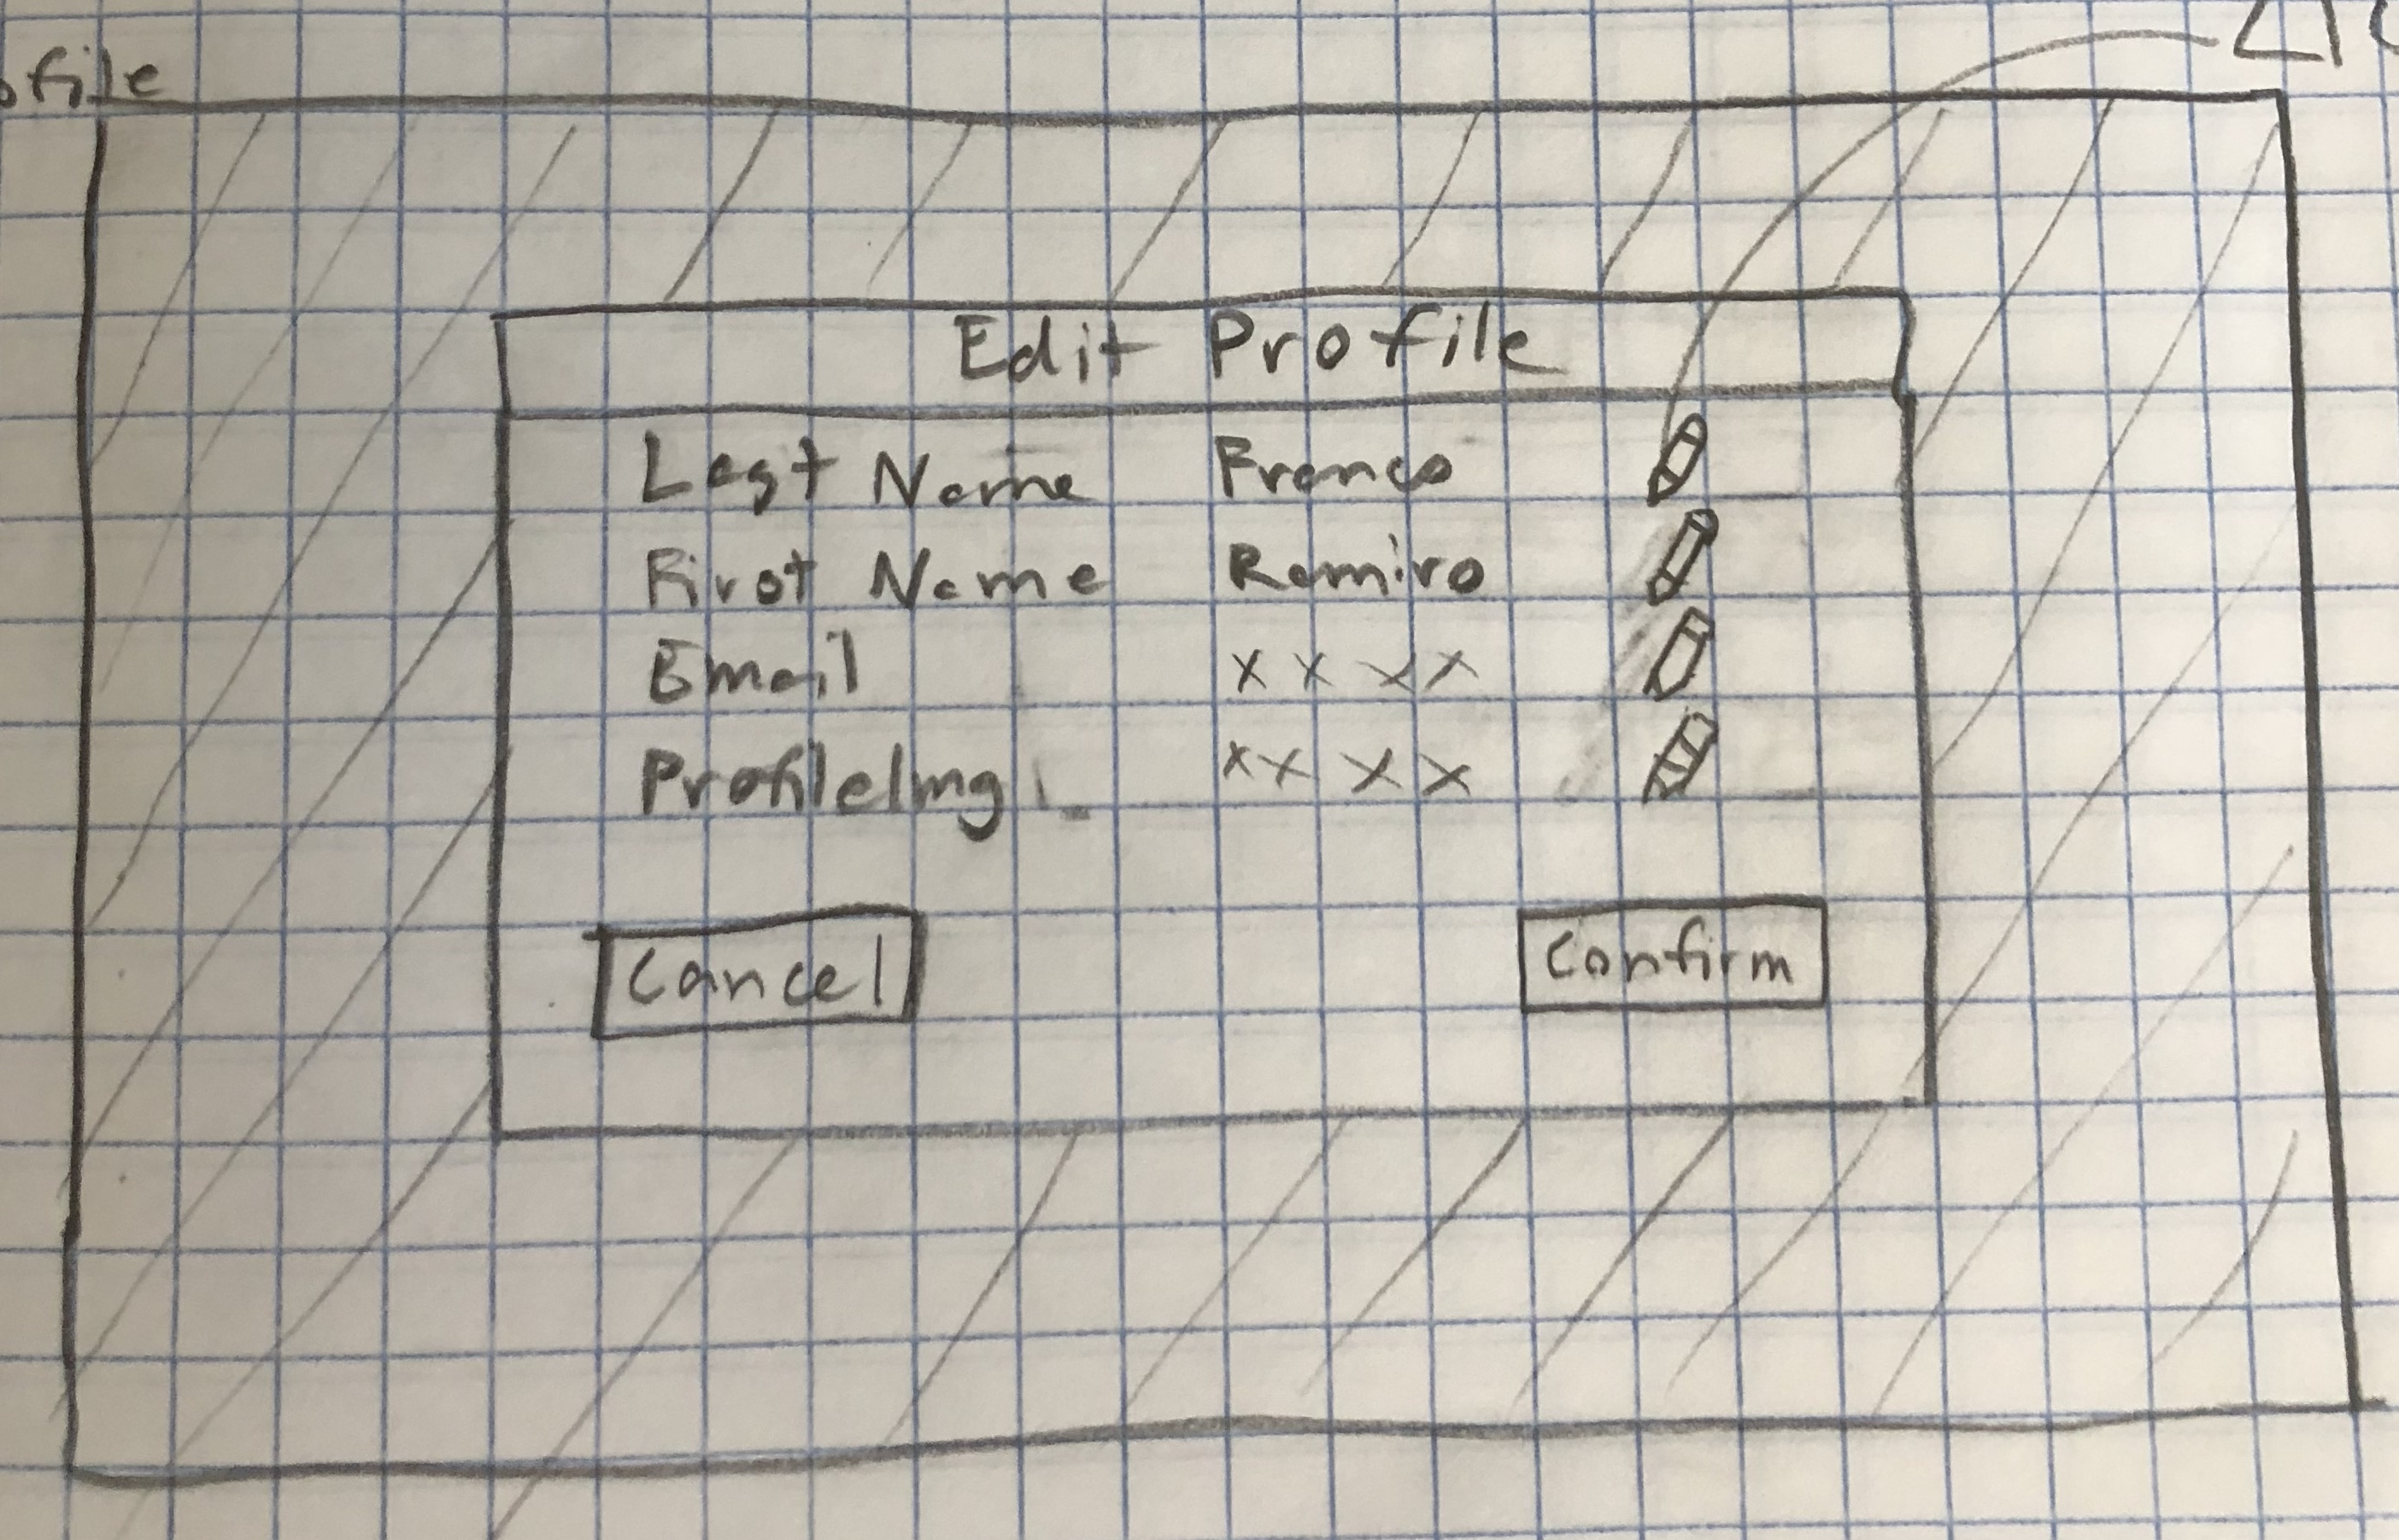 ofile
Edit Profile
Last Name Franco
First Name Ramiro
Email x x x x
ProfileImg x x x x
Cancel Confirm